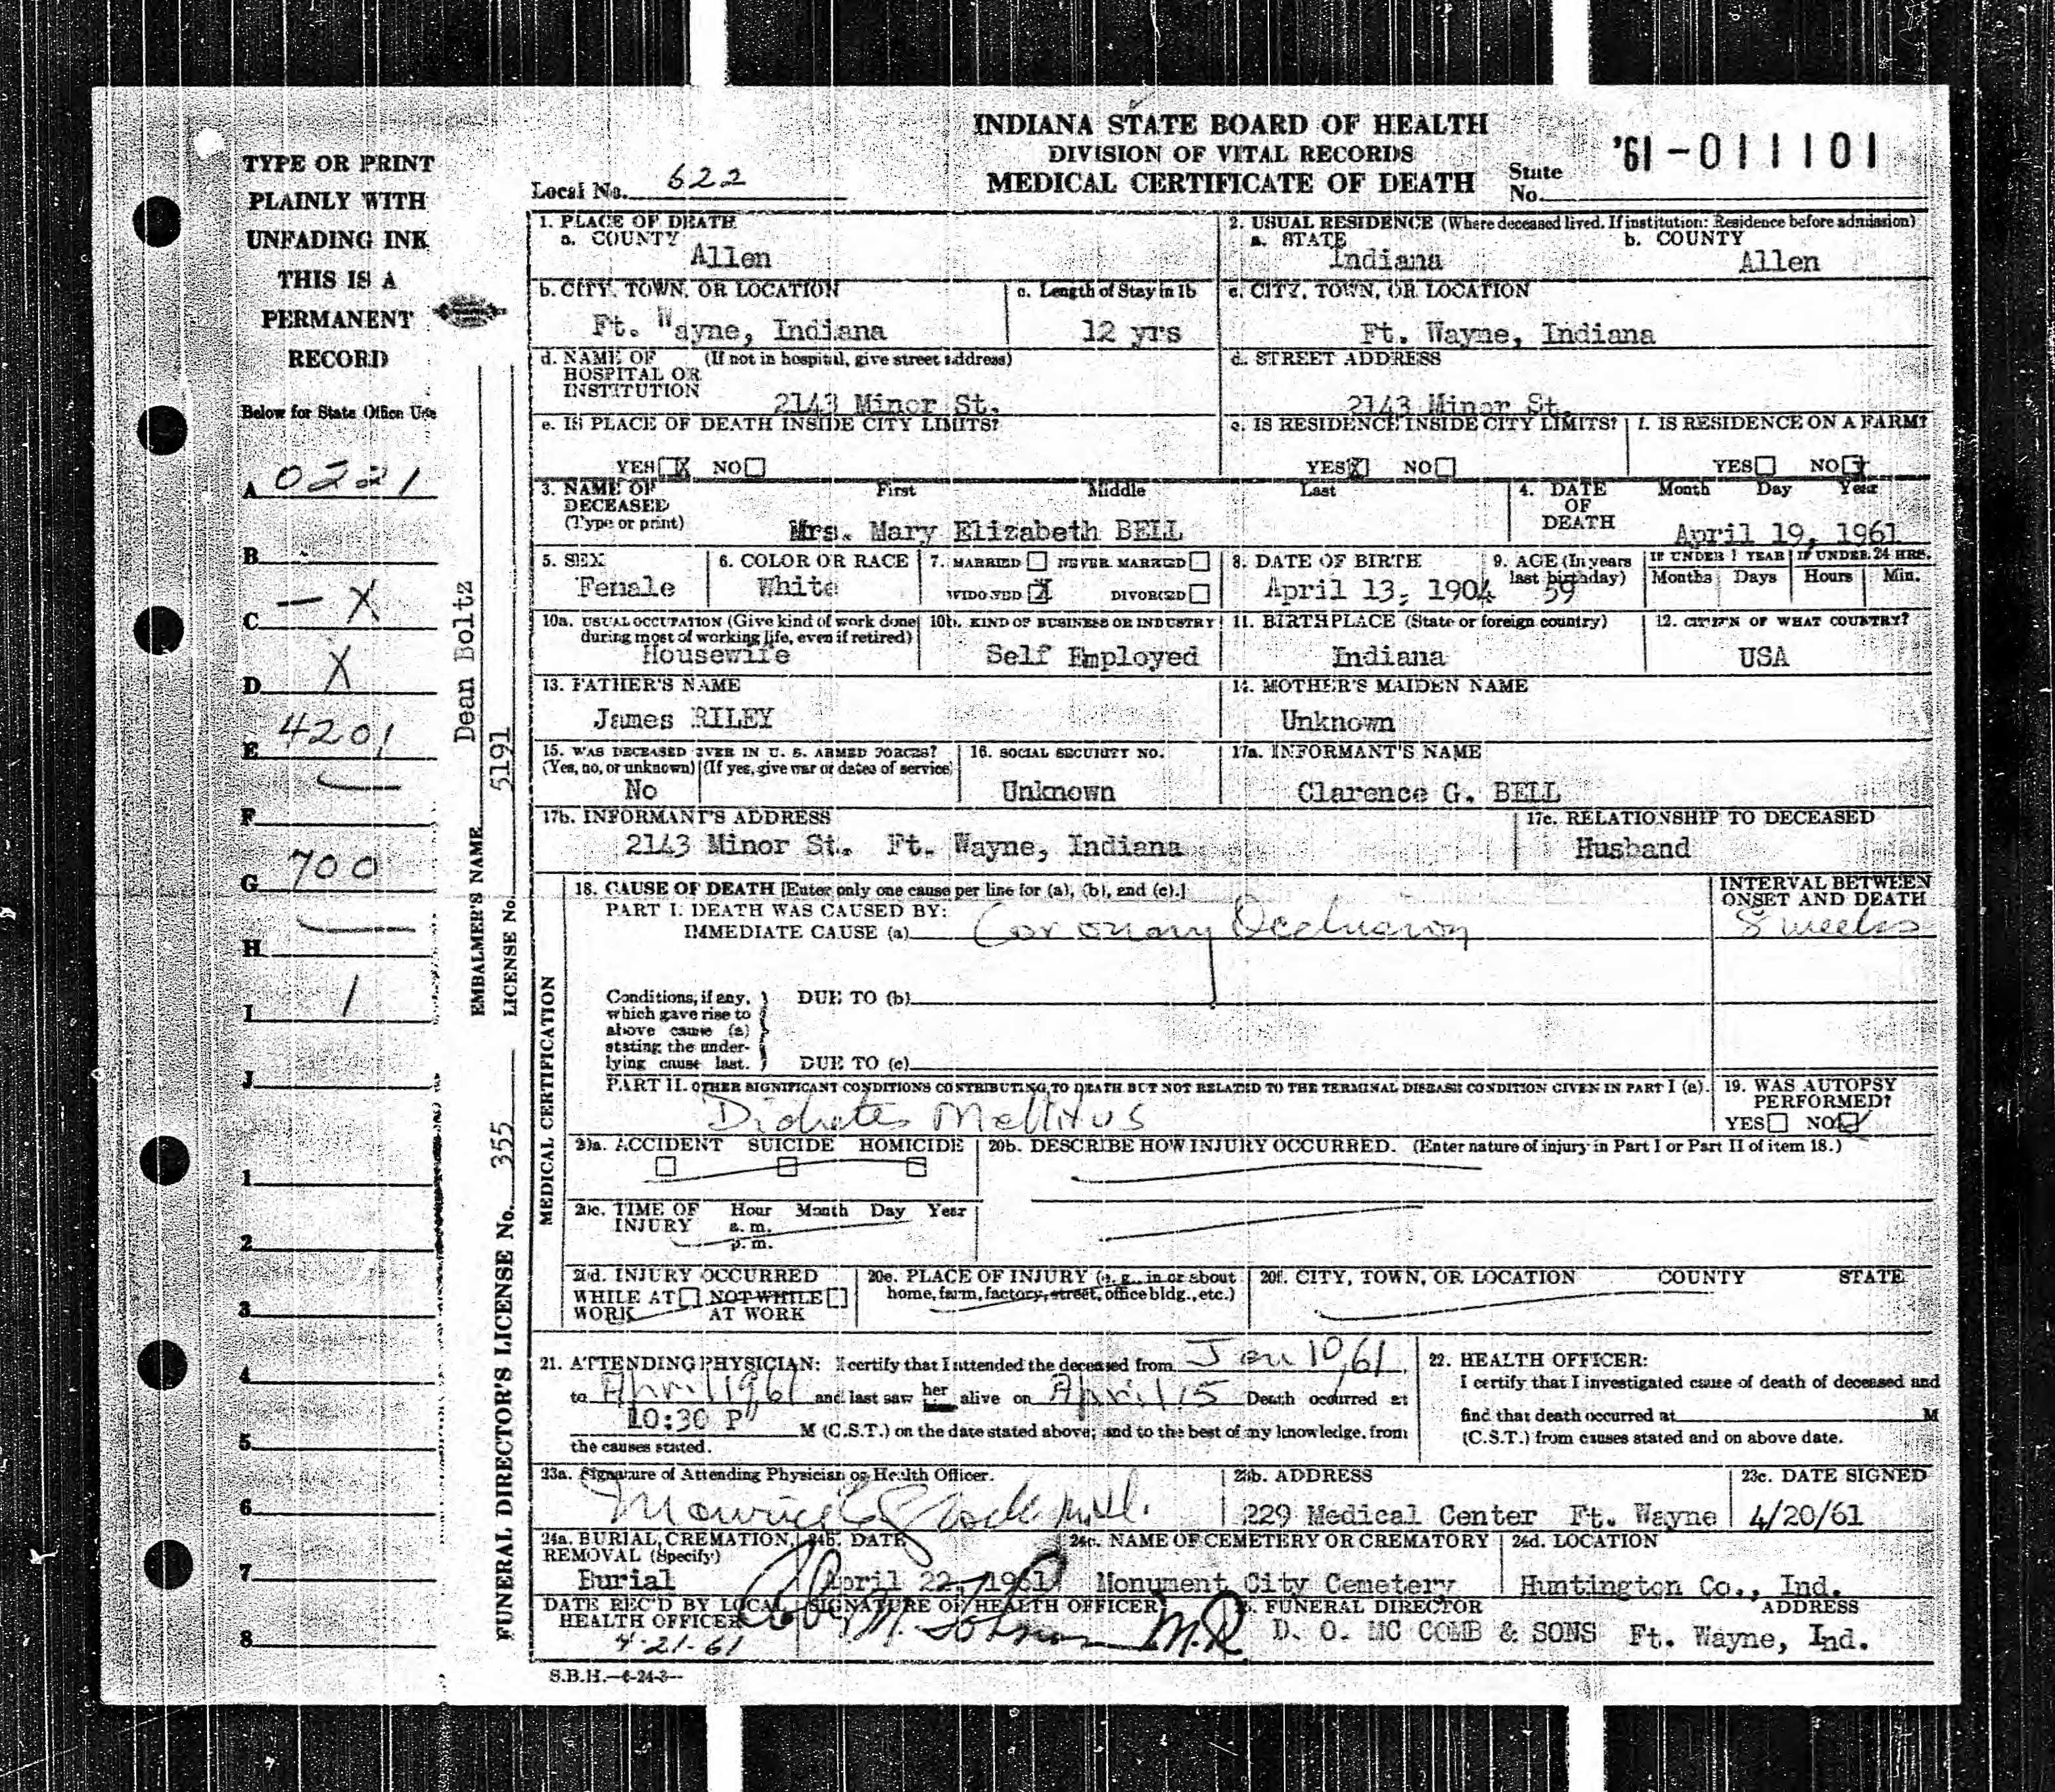 INDIANA STATE BOARD OF HEALTH
DIVISION OF VITAL RECORDS
MEDICAL CERTIFICATE OF DEATH
Local No. 622
State No. '61-011101
TYPE OR PRINT
PLAINLY WITH
UNFADING INK
THIS IS A
PERMANENT
RECORD
Below for State Office Use
A 0221
B
C - X
D X
E 4201
F
G 700
H
I 1
J
1
2
3
4
5
6
7
8
EMBALMER'S NAME Dean Boltz
LICENSE No. 5191
FUNERAL DIRECTOR'S LICENSE No. 355
1. PLACE OF DEATH
a. COUNTY
Allen
2. USUAL RESIDENCE (Where deceased lived. If institution: Residence before admission)
a. STATE b. COUNTY
Indiana Allen
b. CITY, TOWN, OR LOCATION
Ft. Wayne, Indiana
c. Length of Stay in 1b
12 yrs
c. CITY, TOWN, OR LOCATION
Ft. Wayne, Indiana
d. NAME OF (If not in hospital, give street address)
HOSPITAL OR
INSTITUTION
2143 Minor St.
d. STREET ADDRESS
2143 Minor St.
e. IS PLACE OF DEATH INSIDE CITY LIMITS?
YES X NO
e. IS RESIDENCE INSIDE CITY LIMITS?
YES X NO
f. IS RESIDENCE ON A FARM?
YES NO X
3. NAME OF DECEASED (Type or print)
First Middle Last
Mrs. Mary Elizabeth BELL
4. DATE OF DEATH
Month Day Year
April 19, 1961
5. SEX
Female
6. COLOR OR RACE
White
7. MARRIED NEVER MARRIED
WIDOWED X DIVORCED
8. DATE OF BIRTH
April 13, 1904
9. AGE (In years last birthday)
59
IF UNDER 1 YEAR
Months Days
IF UNDER 24 HRS.
Hours Min.
10a. USUAL OCCUPATION (Give kind of work done during most of working life, even if retired)
Housewife
10b. KIND OF BUSINESS OR INDUSTRY
Self Employed
11. BIRTHPLACE (State or foreign country)
Indiana
12. CITIZEN OF WHAT COUNTRY?
USA
13. FATHER'S NAME
James RILEY
14. MOTHER'S MAIDEN NAME
Unknown
15. WAS DECEASED EVER IN U. S. ARMED FORCES?
(Yes, no, or unknown) (If yes, give war or dates of service)
No
16. SOCIAL SECURITY NO.
Unknown
17a. INFORMANT'S NAME
Clarence G. BELL
17b. INFORMANT'S ADDRESS
2143 Minor St. Ft. Wayne, Indiana
17c. RELATIONSHIP TO DECEASED
Husband
MEDICAL CERTIFICATION
18. CAUSE OF DEATH [Enter only one cause per line for (a), (b), and (c).]
PART I. DEATH WAS CAUSED BY:
IMMEDIATE CAUSE (a) Coronary Occlusion
INTERVAL BETWEEN ONSET AND DEATH
8 weeks
Conditions, if any, which gave rise to above cause (a) stating the underlying cause last.
DUE TO (b)
DUE TO (c)
PART II. OTHER SIGNIFICANT CONDITIONS CONTRIBUTING TO DEATH BUT NOT RELATED TO THE TERMINAL DISEASE CONDITION GIVEN IN PART I (a).
Diabetes Mellitus
19. WAS AUTOPSY PERFORMED?
YES NO
20a. ACCIDENT SUICIDE HOMICIDE
20b. DESCRIBE HOW INJURY OCCURRED. (Enter nature of injury in Part I or Part II of item 18.)
20c. TIME OF INJURY Hour Month Day Year
a. m.
p. m.
20d. INJURY OCCURRED
WHILE AT WORK NOT WHILE AT WORK
20e. PLACE OF INJURY (e. g., in or about home, farm, factory, street, office bldg., etc.)
20f. CITY, TOWN, OR LOCATION COUNTY STATE
21. ATTENDING PHYSICIAN: I certify that I attended the deceased from Jan 10, 61
to April 1961 and last saw her him alive on April 15 Death occurred at
10:30 P M (C.S.T.) on the date stated above; and to the best of my knowledge, from
the causes stated.
22. HEALTH OFFICER:
I certify that I investigated cause of death of deceased and
find that death occurred at M
(C.S.T.) from causes stated and on above date.
23a. Signature of Attending Physician or Health Officer.
Maurice Rock M.D.
23b. ADDRESS
229 Medical Center Ft. Wayne
23c. DATE SIGNED
4/20/61
24a. BURIAL, CREMATION, REMOVAL (Specify)
Burial
24b. DATE
April 22, 1961
24c. NAME OF CEMETERY OR CREMATORY
Monument City Cemetery
24d. LOCATION
Huntington Co., Ind.
DATE REC'D BY LOCAL HEALTH OFFICER
4-21-61
SIGNATURE OF HEALTH OFFICER
M. M.D.
FUNERAL DIRECTOR ADDRESS
D. O. MC COMB & SONS Ft. Wayne, Ind.
S.B.H.—6-24-3--